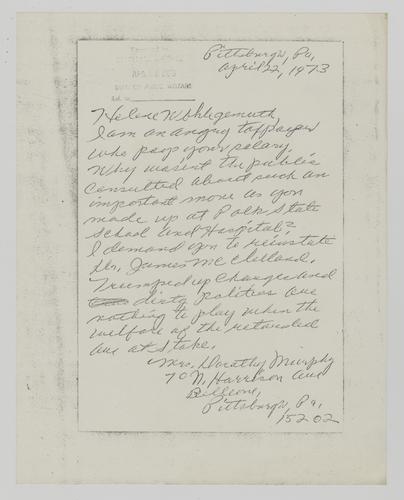 Pittsburgh, Pa,
April 22, 1973
Helene Wohlgemuth,
I am an angry taxpayer
who pays your salary.
Why wasint the public
consulted about such an
important move as you
made up at Polk State
School and Hospital?
I demand you to reinstate
Dr. James McClelland.
Trumped up Charges and
dirty politics are
nothing to play when the
welfare of the retarded
are at stake.
Mrs. Dorothy Murphy
70 N. Harrison Ave
Bellevue,
Pittsburgh, Pa,
15202